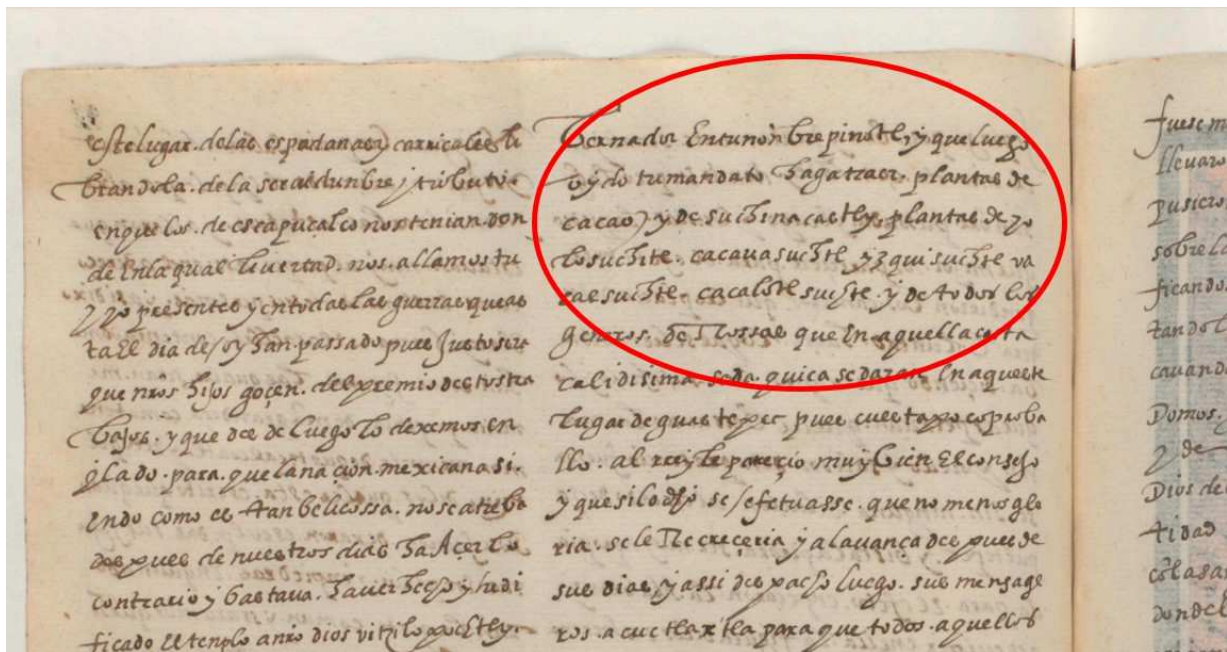 este lugar. delas espadanas y carricales li
brandola. dela seruidunbre y tributo
enque los. de escapuçalco nos tenian. don
de enla qual liuertad. nos. allamos tu
y yo presentes y entodas las guerras que as
ta el dia de oy han passado pues justo sera
que nros hijos goçen. del premio destos tra
bajos. y que desde luego lo dexemos en
para. que la naçion mexicana si
endo como es tan belicossa. no se atreba
despues de nuestros dias haçer lo
contrario y bastaua. hauer hecho y hedi
ficado el templo a nro dios vitzilopochtly.
bernador en tu nonbre pinotl, y que luego
oydo tu mandato haga traer. plantas de
cacao, y de suchinacastly, plantas de yo
losuchite. cacauasuchtl, yzquisuchte va
casuchte. cacalotlsuchte. y de todos los
generos. de rossas que en aquella costa
calidisima se da. quiça se daran en aqueste
lugar de guastepec, pues cuesta poco proba
llo. al rey le pareçio muy bien el consejo
y que si lo dijo se efetuasse. que no menos glo
ria. se le recreçeria y alauança despues de
sus dias, y assi despacho luego. sus mensage
ros. a cuetlaxtla para que todos. aquellos
fuese m
lleuaro
pusiero
sobre la
ficando
tandol
cauando
Domos,
y de
Dios de
tidad
cõlasa
donde